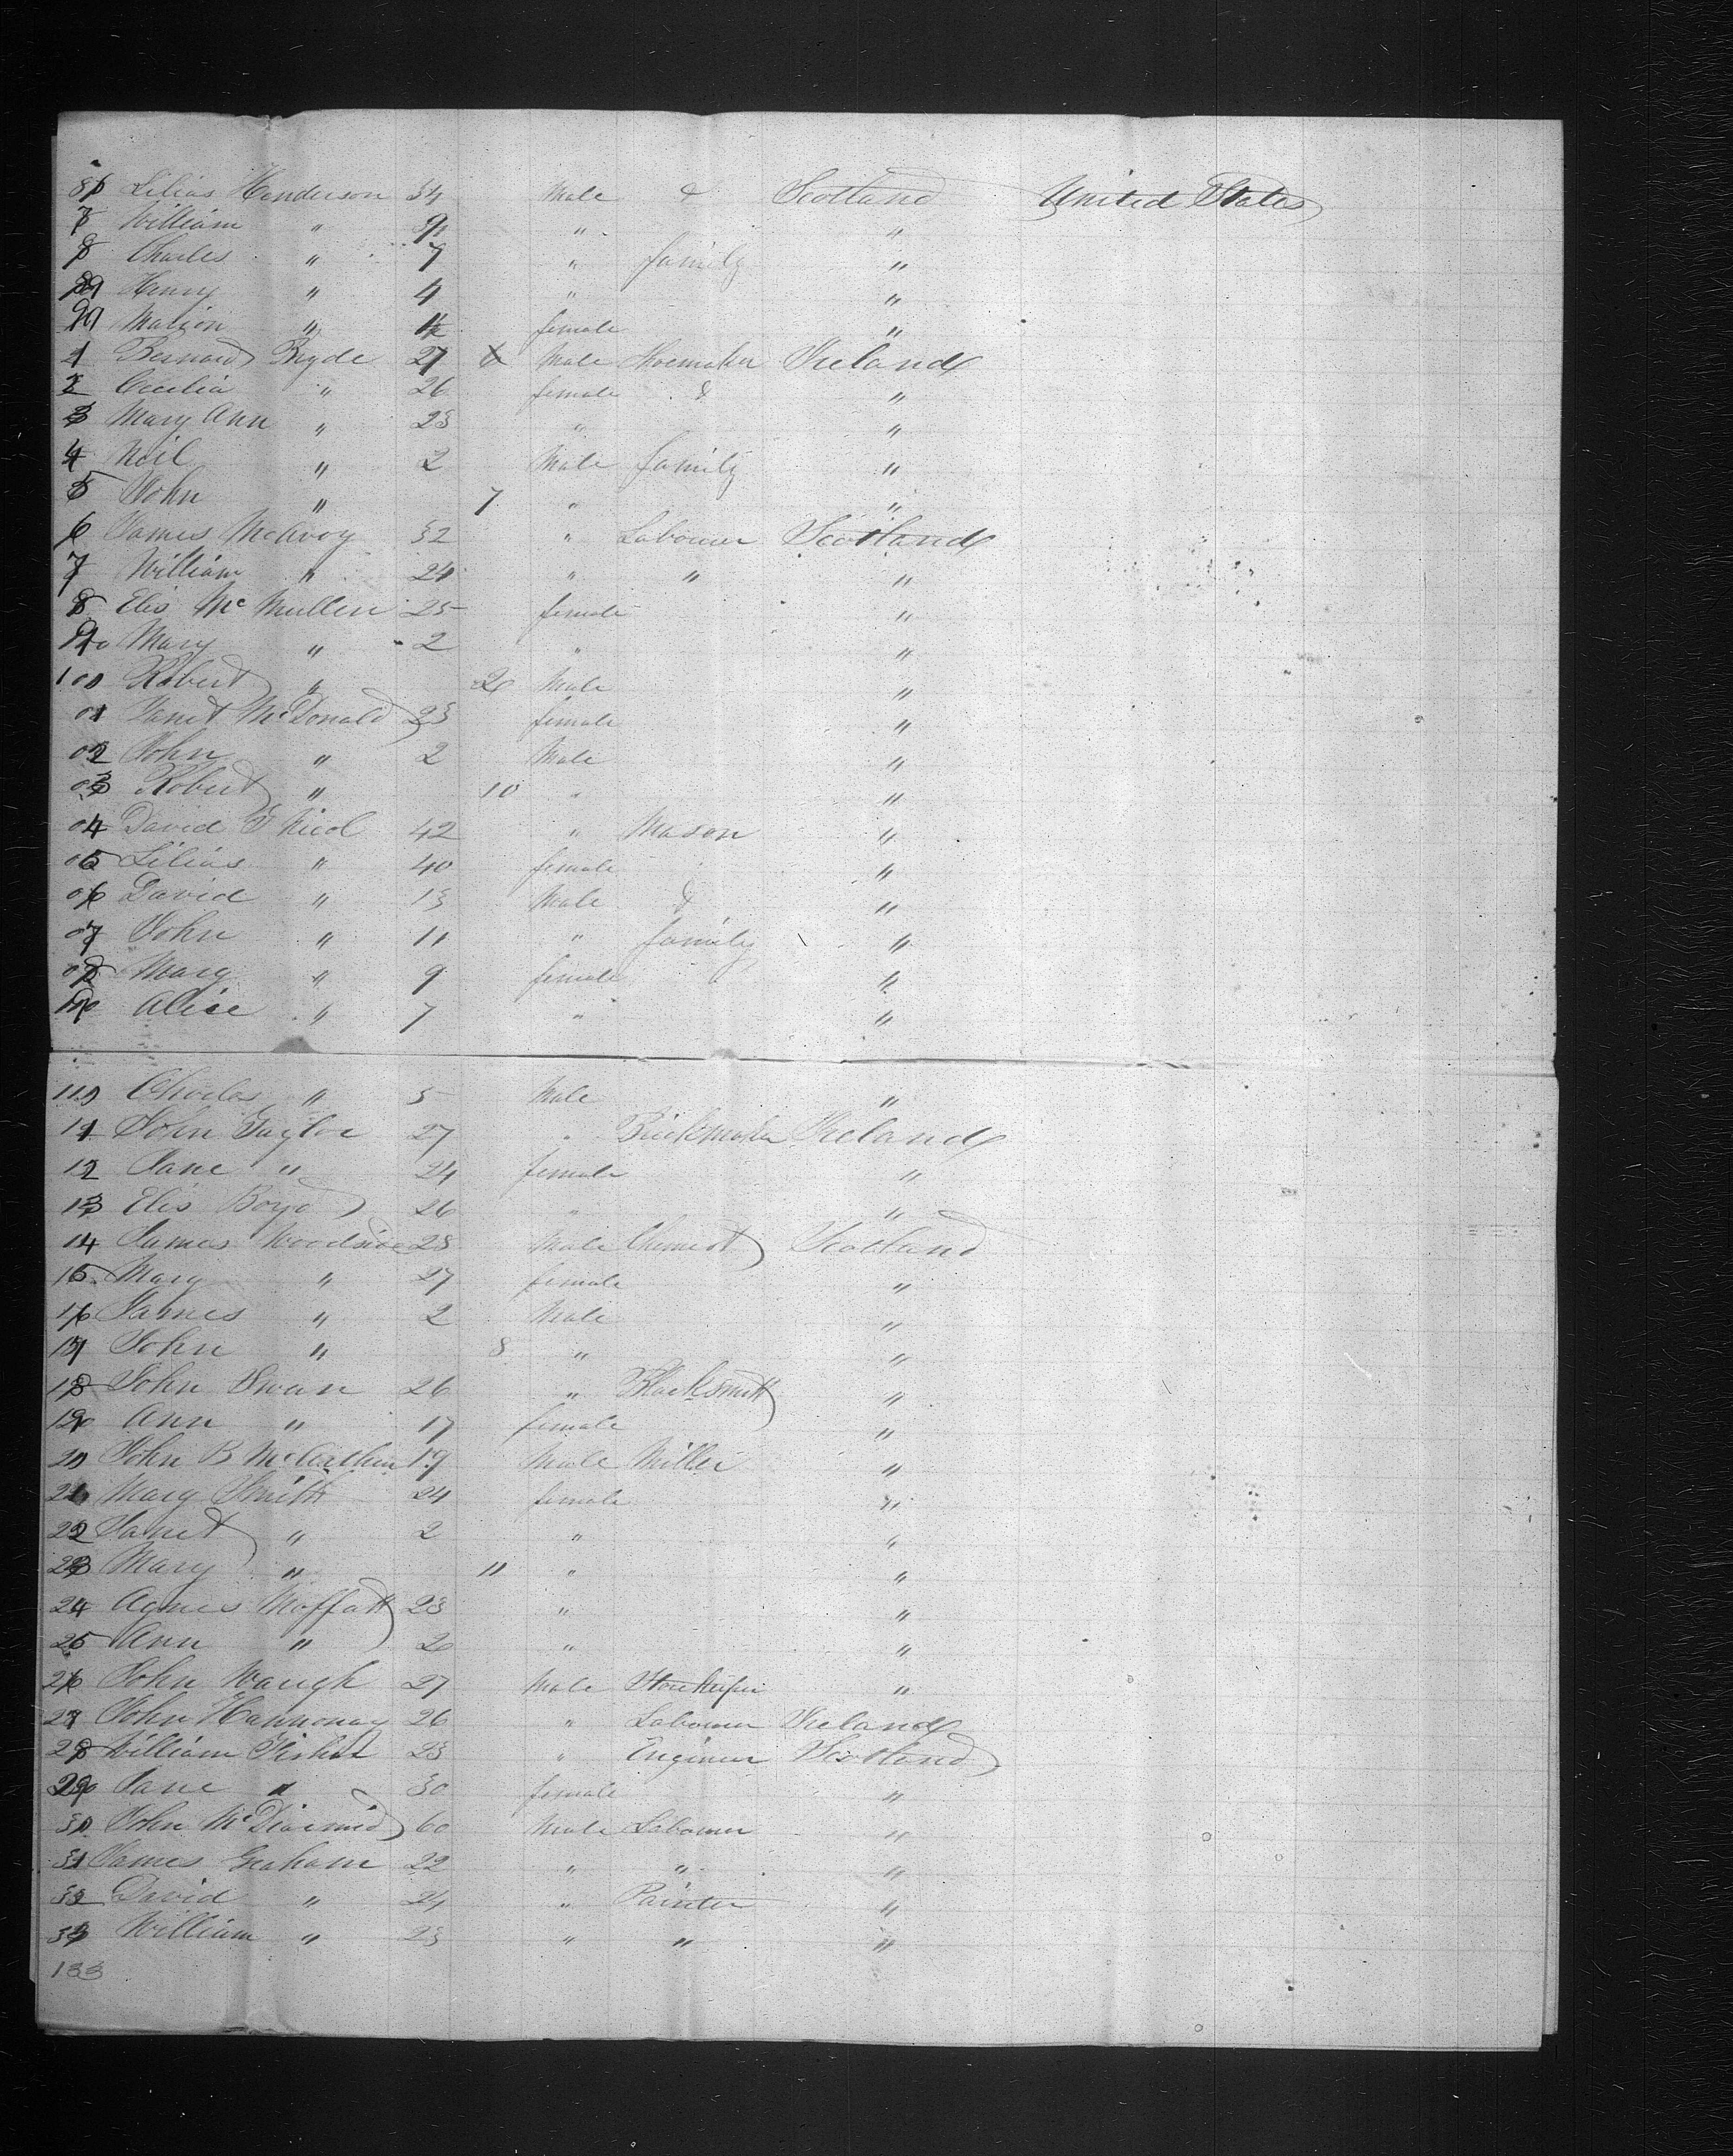 86 Lilias Henderson 34 Male & Scotland United States
7 William " 9 " "
8 Charles " 7 " family "
89 Henry " 4 " "
90 Marion " female "
1 Bernard Bryde 27 Male Shoemaker Ireland
2 Cecilia " 26 female & "
3 Mary Ann " 23 " "
4 Neil " 2 Male family "
5 John " 7 " "
6 James McAvoy 32 " Labourer Scotland
7 William " 24 " " "
8 Elis McMullen 25 female "
9 Mary " 2 " "
100 Robert " Male "
01 Janet McDonald 23 female "
02 John " 2 Male "
03 Robert " 10 " "
04 David Nicol 42 " Mason "
05 Lilias " 40 female "
06 David " 13 Male & "
07 John " 11 " family "
08 Mary " 9 female "
Alice " 7 " "
110 Charles " 5 Male "
11 John Taylor 27 " Brickmaker Ireland
12 Jane " 24 female "
13 Elis Boyd 26 " "
14 James Woodside 28 Male Chemist Scotland
15 Mary " 27 female "
16 James " 2 Male "
17 John " 8 " "
18 John Swan 26 " Blacksmith "
19 Ann " 17 female "
20 John B 19 Male Miller "
21 Mary Smith 24 female "
22 Janet " 2 " "
23 Mary " 11 " "
24 Agnes Moffatt 23 " "
25 Ann " 2 " "
26 John Waugh 27 Male Storekeeper "
27 John Hannonay 26 " Labourer Ireland
28 William 23 " Engineer Scotland
29 Jane " 30 female "
30 John McDiarmid 60 Male Labourer "
31 James Graham 22 " " "
32 David " 24 " Painter "
33 William " 23 " " "
133